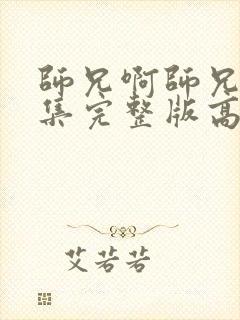 師兄啊師兄
集完整版高
艾若若